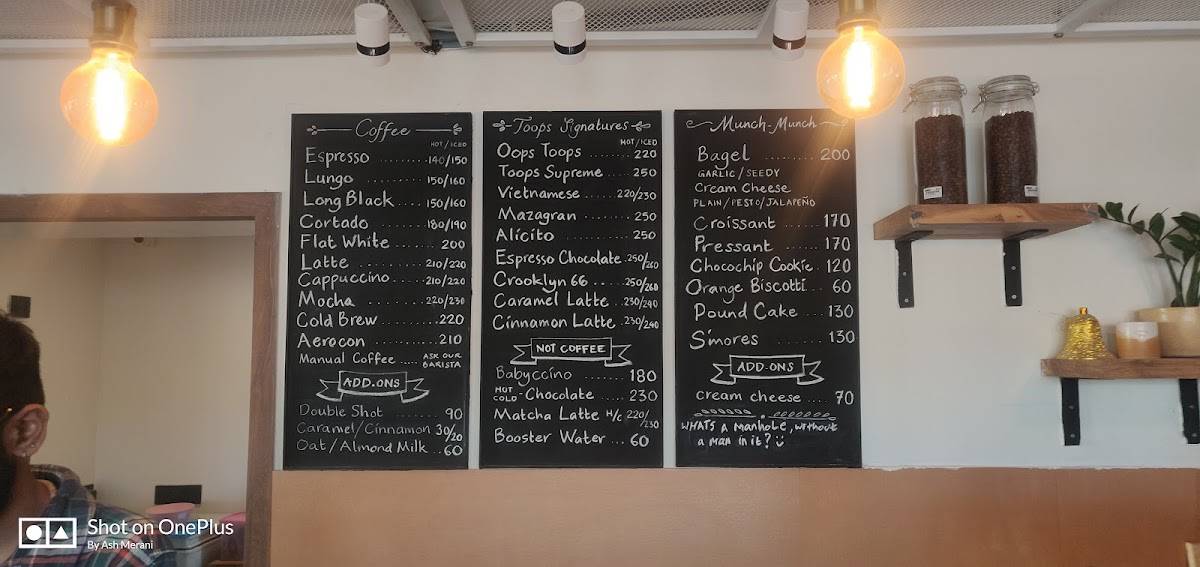 Coffee
HOT/ICED
Espresso ......... 140/150
Lungo ......... 150/160
Long Black .... 150/160
Cortado ......... 180/190
Flat White ...... 200
Latte ......... 210/220
Cappuccino ...... 210/220
Mocha ......... 220/230
Cold Brew ......... 220
Aerocon ......... 210
Manual Coffee ..... ASK OUR BARISTA
ADD-ONS
Double Shot ....... 90
Caramel/Cinnamon 30/20
Oat/Almond Milk .. 60
Toops Signatures
HOT/ICED
Oops Toops ....... 220
Toops Supreme .... 250
Vietnamese ..... 220/230
Mazagran ....... 250
Alicito ....... 250
Espresso Chocolate .250/260
Crooklyn 66 .. ..250/260
Caramel Latte ..230/240
Cinnamon Latte .230/240
NOT COFFEE
Babyccino ....... 180
HOT COLD - Chocolate .... 230
Matcha Latte H/C 220/230
Booster Water ... 60
Munch-Munch
Bagel ........ 200
GARLIC / SEEDY
Cream Cheese
PLAIN/PESTO/JALAPEÑO
Croissant ..... 170
Pressant ...... 170
Chocochip Cookie . 120
Orange Biscotti ... 60
Pound Cake .... 130
S'mores ....... 130
ADD-ONS
cream cheese .... 70
WHATS A Manhole, without
a man in it?
Shot on OnePlus
By Ash Merani